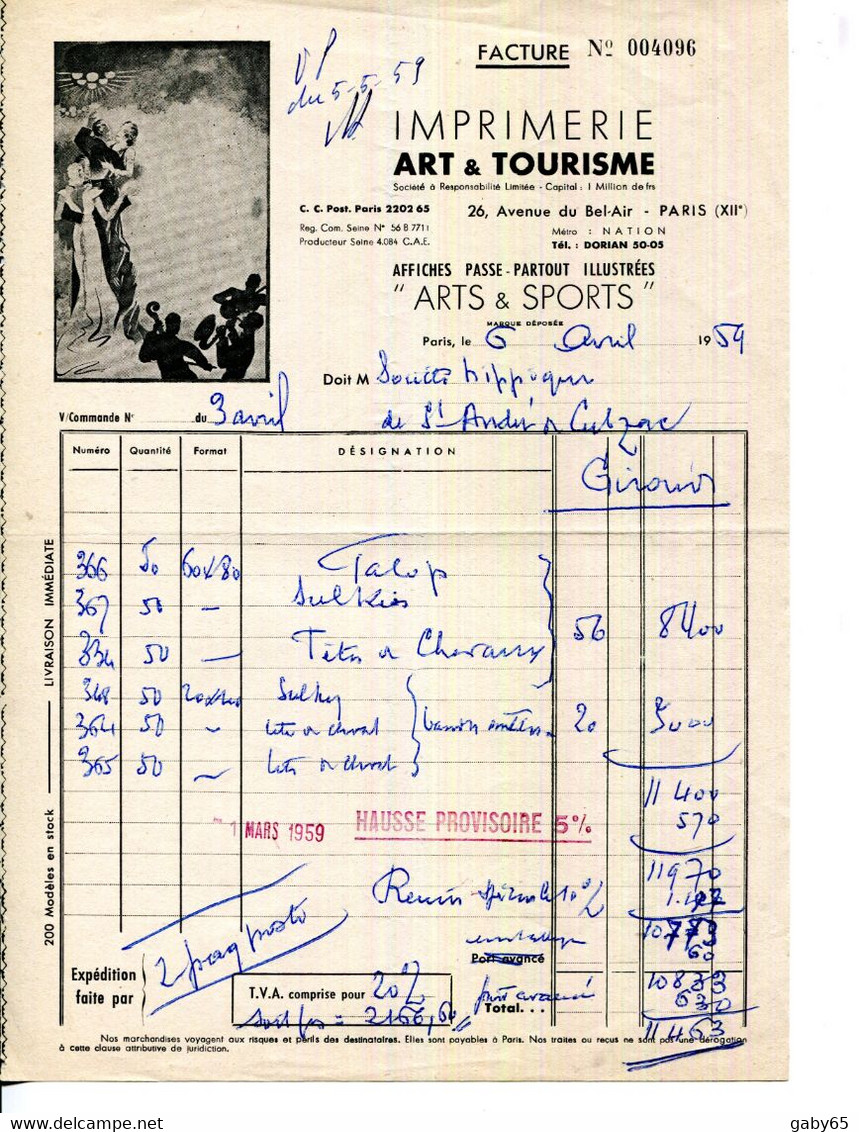 VP
du 5-5-59
FACTURE Nº 004096
IMPRIMERIE
ART & TOURISME
Société à Responsabilité Limitée - Capital : 1 Million de frs
C. C. Post. Paris 2202 65
26, Avenue du Bel-Air - PARIS (XIIᵉ)
Reg. Com. Seine Nº 56 B 7711
Métro : NATION
Producteur Seine 4.084 C.A.E.
Tél. : DORIAN 50-05
AFFICHES PASSE-PARTOUT ILLUSTRÉES
" ARTS & SPORTS "
MARQUE DÉPOSÉE
Paris, le 6 Avril 1959
Doit M Société hippique
V/Commande Nº du 3 avril
de St André de Cubzac
Numéro Quantité Format DÉSIGNATION
Gironde
366 50 60x80 Galop
367 50 — Sulkies
334 50 — Têtes de Chevaux 56 8400
348 50 Sulky
364 50 tete de cheval 20 3000
365 50 tete de cheval
11 400
1 MARS 1959 HAUSSE PROVISOIRE 5% 570
11970
Remise spéciale 10% 1.197
10773
emballage 60
Port avancé
10833
port avancé 630
Total. . . 11 463
2 paq poste
Expédition
faite par
T.V.A. comprise pour 20%
soit frs = 2166,60
LIVRAISON IMMÉDIATE
200 Modèles en stock
Nos marchandises voyagent aux risques et périls des destinataires. Elles sont payables à Paris. Nos traites ou reçus ne sont pas une dérogation
à cette clause attributive de juridiction.
gaby65